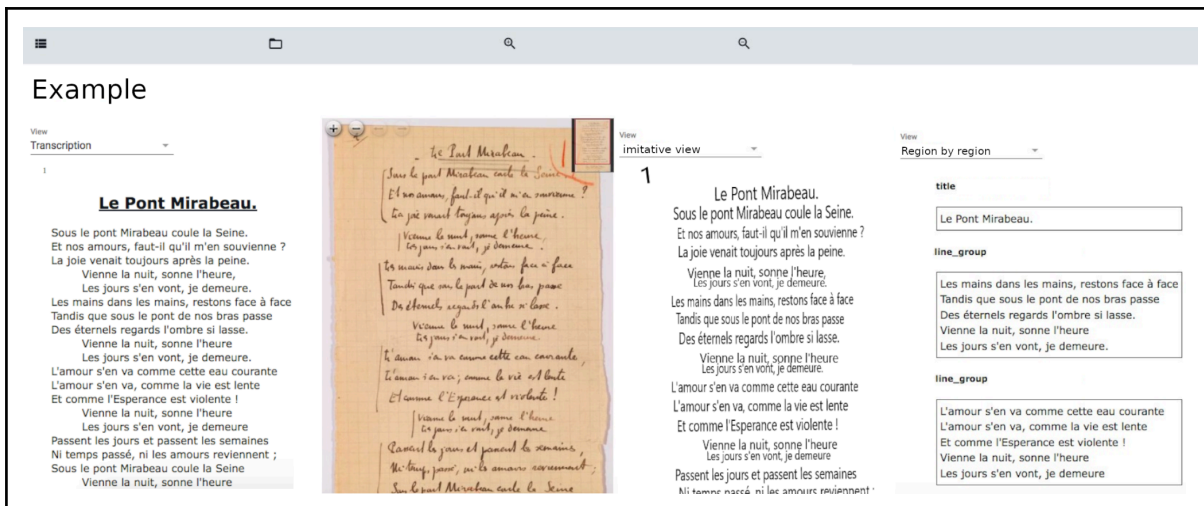 Example
View
Transcription
1
Le Pont Mirabeau.
Sous le pont Mirabeau coule la Seine.
Et nos amours, faut-il qu'il m'en souvienne ?
La joie venait toujours après la peine.
Vienne la nuit, sonne l'heure,
Les jours s'en vont, je demeure.
Les mains dans les mains, restons face à face
Tandis que sous le pont de nos bras passe
Des éternels regards l'ombre si lasse.
Vienne la nuit, sonne l'heure
Les jours s'en vont, je demeure.
L'amour s'en va comme cette eau courante
L'amour s'en va, comme la vie est lente
Et comme l'Esperance est violente !
Vienne la nuit, sonne l'heure
Les jours s'en vont, je demeure
Passent les jours et passent les semaines
Ni temps passé, ni les amours reviennent ;
Sous le pont Mirabeau coule la Seine
Vienne la nuit, sonne l'heure
Le Pont Mirabeau.
Sous le pont Mirabeau coule la Seine
Et nos amours, faut-il qu'il m'en souvienne ?
La joie venait toujours après la peine.
Vienne la nuit, sonne l'heure,
Les jours s'en vont, je demeure
Les mains dans les mains, restons face à face
Tandis que sous le pont de nos bras passe
Des éternels regards l'onde si lasse.
Vienne la nuit, sonne l'heure
Les jours s'en vont, je demeure
L'amour s'en va comme cette eau courante,
L'amour s'en va ; comme la vie est lente
Et comme l'Esperance est violente !
Vienne la nuit, sonne l'heure
Les jours s'en vont, je demeure
Passent les jours et passent les semaines,
Ni temps passé, ni les amours reviennent ;
Sous le pont Mirabeau coule la Seine
View
imitative view
1
Le Pont Mirabeau.
Sous le pont Mirabeau coule la Seine.
Et nos amours, faut-il qu'il m'en souvienne ?
La joie venait toujours après la peine.
Vienne la nuit, sonne l'heure,
Les jours s'en vont, je demeure.
Les mains dans les mains, restons face à face
Tandis que sous le pont de nos bras passe
Des éternels regards l'ombre si lasse.
Vienne la nuit, sonne l'heure
Les jours s'en vont, je demeure.
L'amour s'en va comme cette eau courante
L'amour s'en va, comme la vie est lente
Et comme l'Esperance est violente !
Vienne la nuit, sonne l'heure
Les jours s'en vont, je demeure
Passent les jours et passent les semaines
Ni temps passé, ni les amours reviennent ;
View
Region by region
title
Le Pont Mirabeau.
line_group
Les mains dans les mains, restons face à face
Tandis que sous le pont de nos bras passe
Des éternels regards l'ombre si lasse.
Vienne la nuit, sonne l'heure
Les jours s'en vont, je demeure.
line_group
L'amour s'en va comme cette eau courante
L'amour s'en va, comme la vie est lente
Et comme l'Esperance est violente !
Vienne la nuit, sonne l'heure
Les jours s'en vont, je demeure